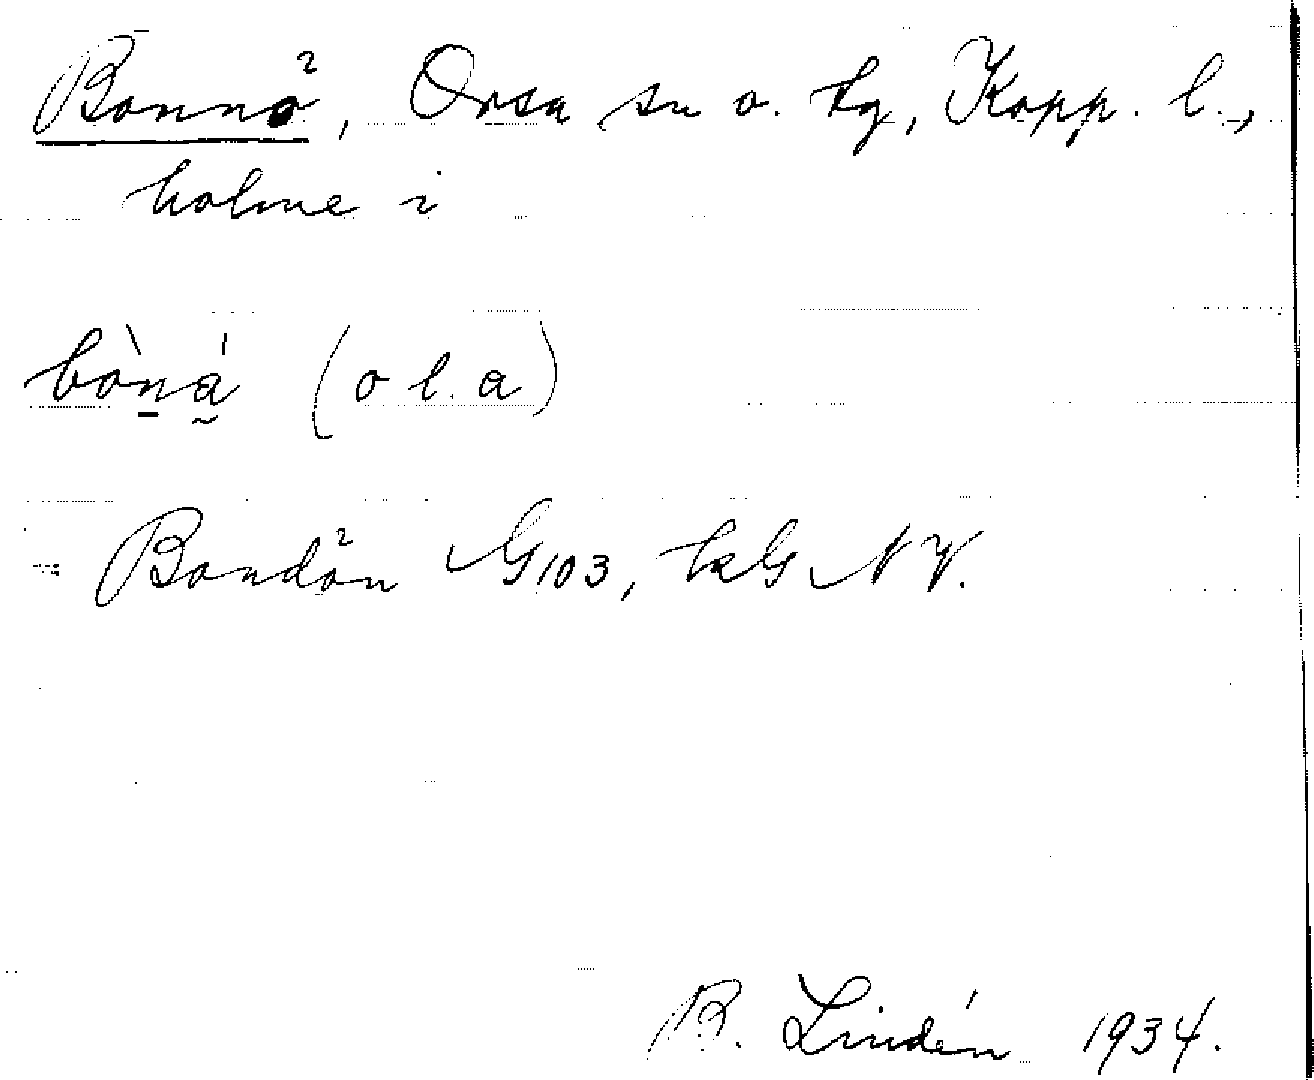 Bonnö, Orsa sn o. tg, Kopp. l.,
holme i
bòn̲á̰ (o l. a)
Bondön G103, kG NV.
B. Lindén 1934.